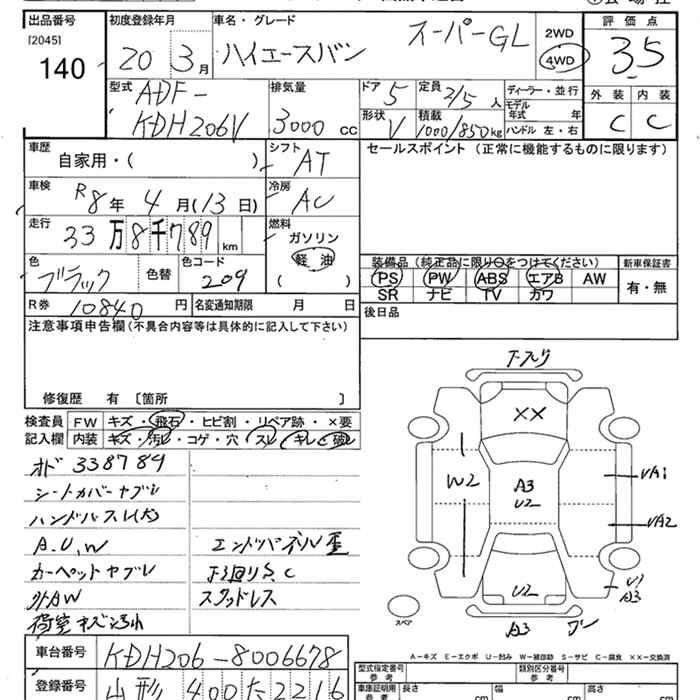 出品番号 初度登録年月 車名・グレード 評価点
[2045]
140
20 3月 ハイエースバン スーパーGL 2WD 4WD 3.5
型式 ADF-
KDH206V
排気量 3000 cc
ドア 5 定員 2/5 人 ディーラー・並行 外装 内装
形状 V 積載 1000/850 kg モデル年式 年 C C
ハンドル 左・右
車歴 自家用・( ) シフト AT セールスポイント (正常に機能するものに限ります)
車検 R8年 4月(13日) 冷房 AC
走行 33万8千789 km 燃料 ガソリン 軽油 ( )
色 ブラック 色替 色コード 209
装備品 (純正品に限り○をつけてください) 新車保証書
PS PW ABS エアB AW 有・無
SR ナビ TV カワ
R券 10840円 名変通知期限 月 日 後日品
注意事項申告欄 (不具合内容等は具体的に記入して下さい)
修復歴 有 〔箇所 〕
検査員 FW キズ・飛石・ヒビ割・リペア跡・×要
記入欄 内装 キズ・汚れ・コゲ・穴・スレ・キレ・破レ
オド 338789
シートカバーヤブレ
ハンドルスレ(大)
A.U.W エンドパネル歪
カーペットヤブレ 下廻りS.C
外AW スタッドレス
荷室キズ汚れ
XX
W2
A3
U2
VA1
VA2
U2
U1
A3
A3
スペア
A－キズ E－エクボ U－凹み W－補修跡 S－サビ C－腐食 ××－交換済
車台番号 KDH206-8006678
型式指定番号 参考 類別区分番号 参考
登録番号 山形 400た2216
車庫証明用 参考 長さ cm 幅 cm 高さ cm